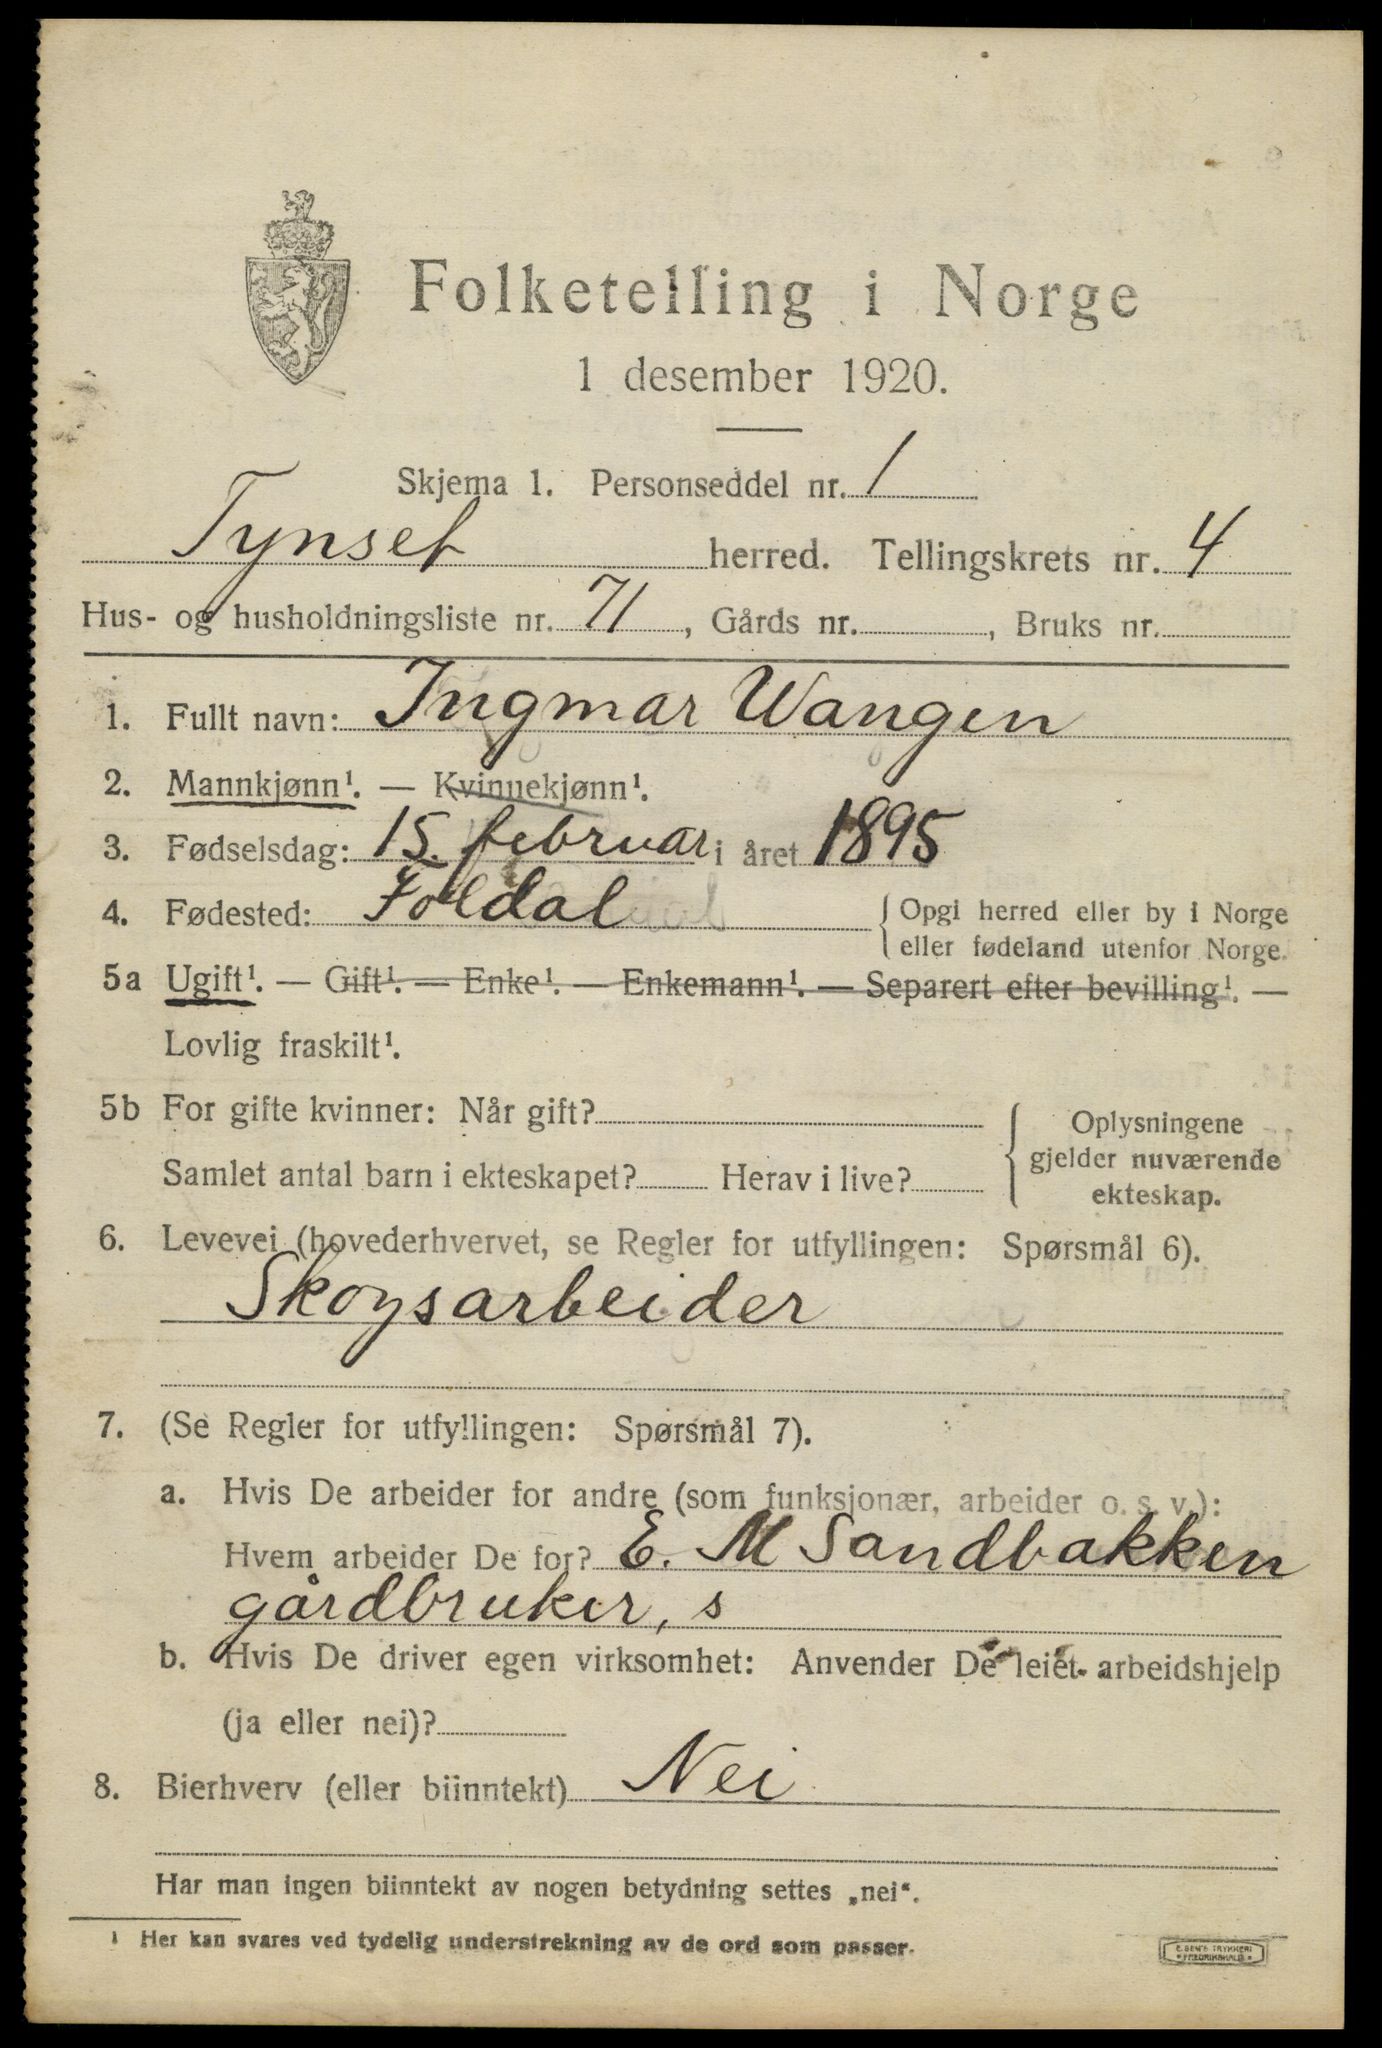 Folketelling i Norge
1 desember 1920.
Skjema 1. Personseddel nr. 1
Tynset herred. Tellingskrets nr. 4
Hus- og husholdningsliste nr. 71, Gårds nr. , Bruks nr.
1. Fullt navn: Ingmar Wangen
2. Mannkjønn¹. — Kvinnekjønn¹.
3. Fødselsdag: 15. februar i året 1895
4. Fødested: Foldal { Opgi herred eller by i Norge
eller fødeland utenfor Norge.
5a Ugift¹. — Gift¹. — Enke¹. — Enkemann¹. — Separert efter bevilling¹. —
Lovlig fraskilt¹.
5b For gifte kvinner: Når gift? { Oplysningene
gjelder nuværende
Samlet antal barn i ekteskapet? Herav i live?
ekteskap.
6. Levevei (hovederhvervet, se Regler for utfyllingen: Spørsmål 6).
Skogsarbeider
7. (Se Regler for utfyllingen: Spørsmål 7).
a. Hvis De arbeider for andre (som funksjonær, arbeider o. s. v.):
Hvem arbeider De for? E. M Sandbakken
gårdbruker, s
b. Hvis De driver egen virksomhet: Anvender De leiet arbeidshjelp
(ja eller nei)?
8. Bierhverv (eller biinntekt) Nei
Har man ingen biinntekt av nogen betydning settes „nei“.
¹ Her kan svares ved tydelig understrekning av de ord som passer.
E. SEM'S TRYKKERI
FREDRIKSHALD